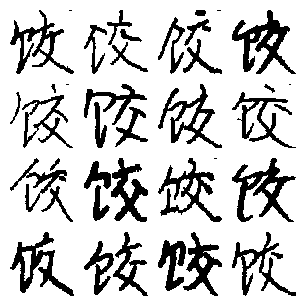 饺饺饺饺
饺饺饺饺
饺饺饺饺
饺饺饺饺